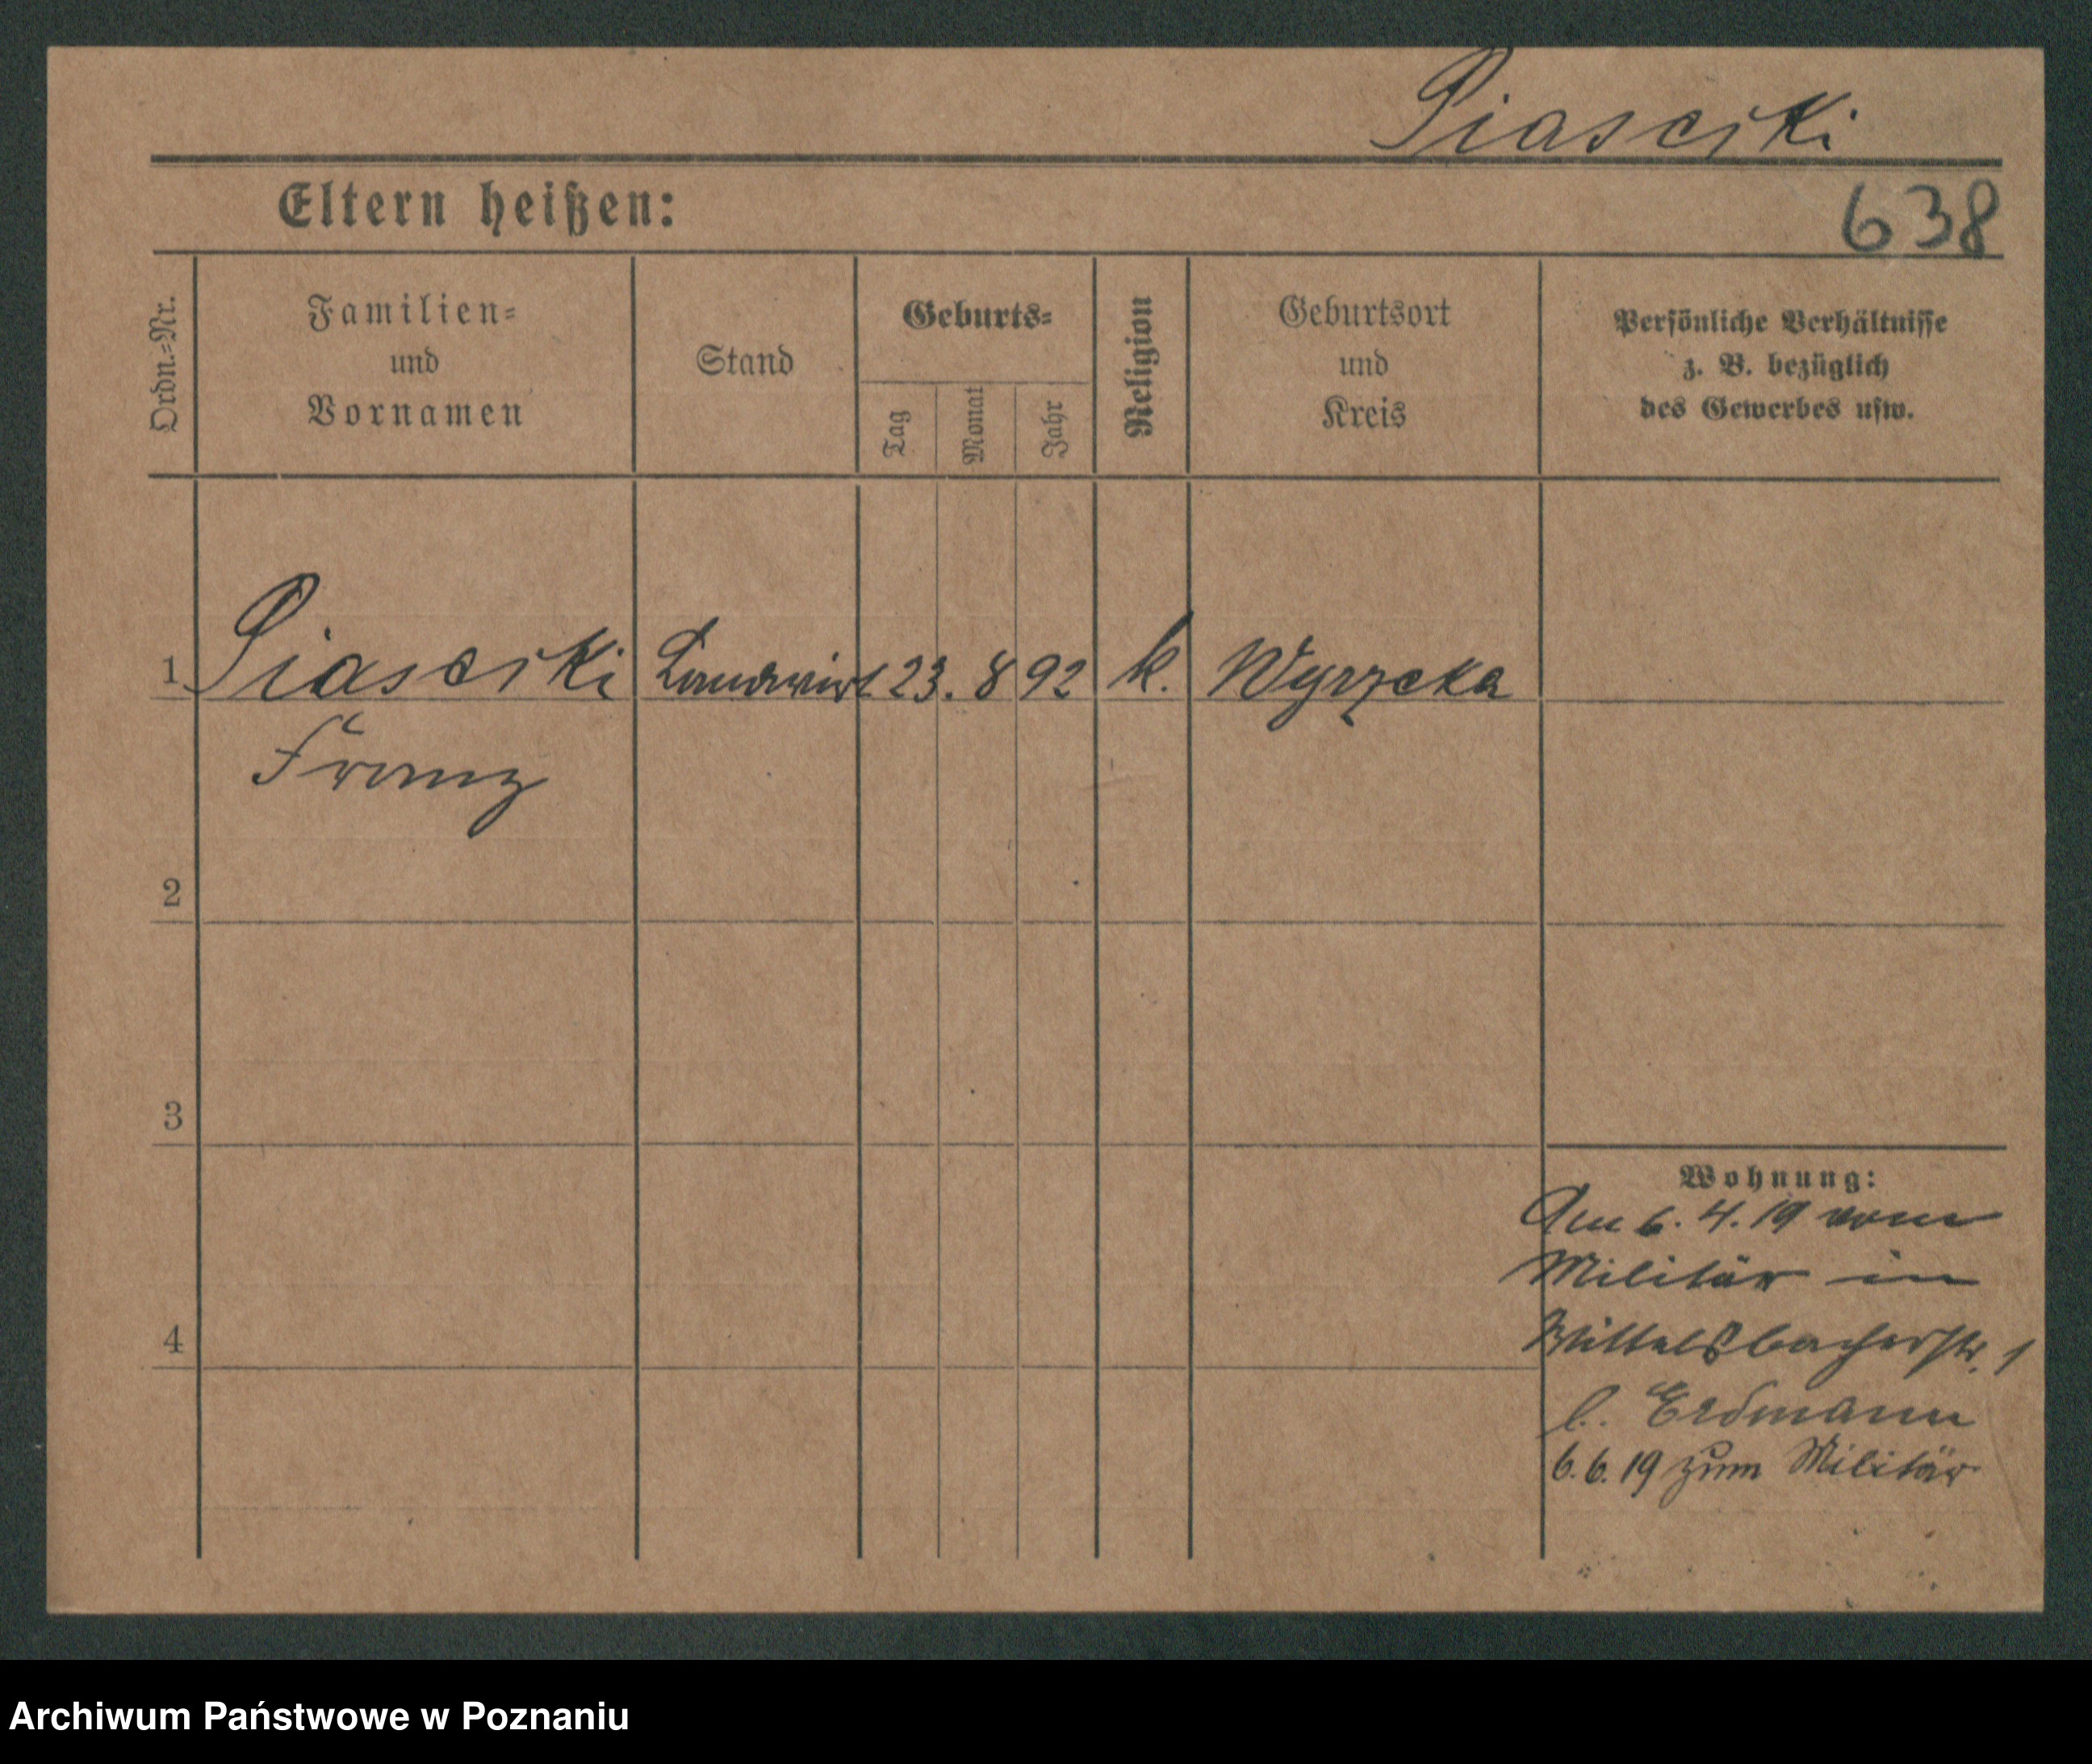 Piasciki
Eltern heißen:
638
Ordn.-Nr.
Familien-
und
Vornamen
Stand
Geburts-
Tag
Monat
Jahr
Religion
Geburtsort
und
Kreis
Persönliche Verhältnisse
z. B. bezüglich
des Gewerbes usw.
1 Piaseiki Landwirt 23. 8 92 k. Wyrzeka
Franz
2
3
4
Wohnung:
Am 6. 4. 19 vom
Militär in
Wittelsbacherstr. 1
b. Erdmann
6. 6. 19 zum Militär
Archiwum Państwowe w Poznaniu